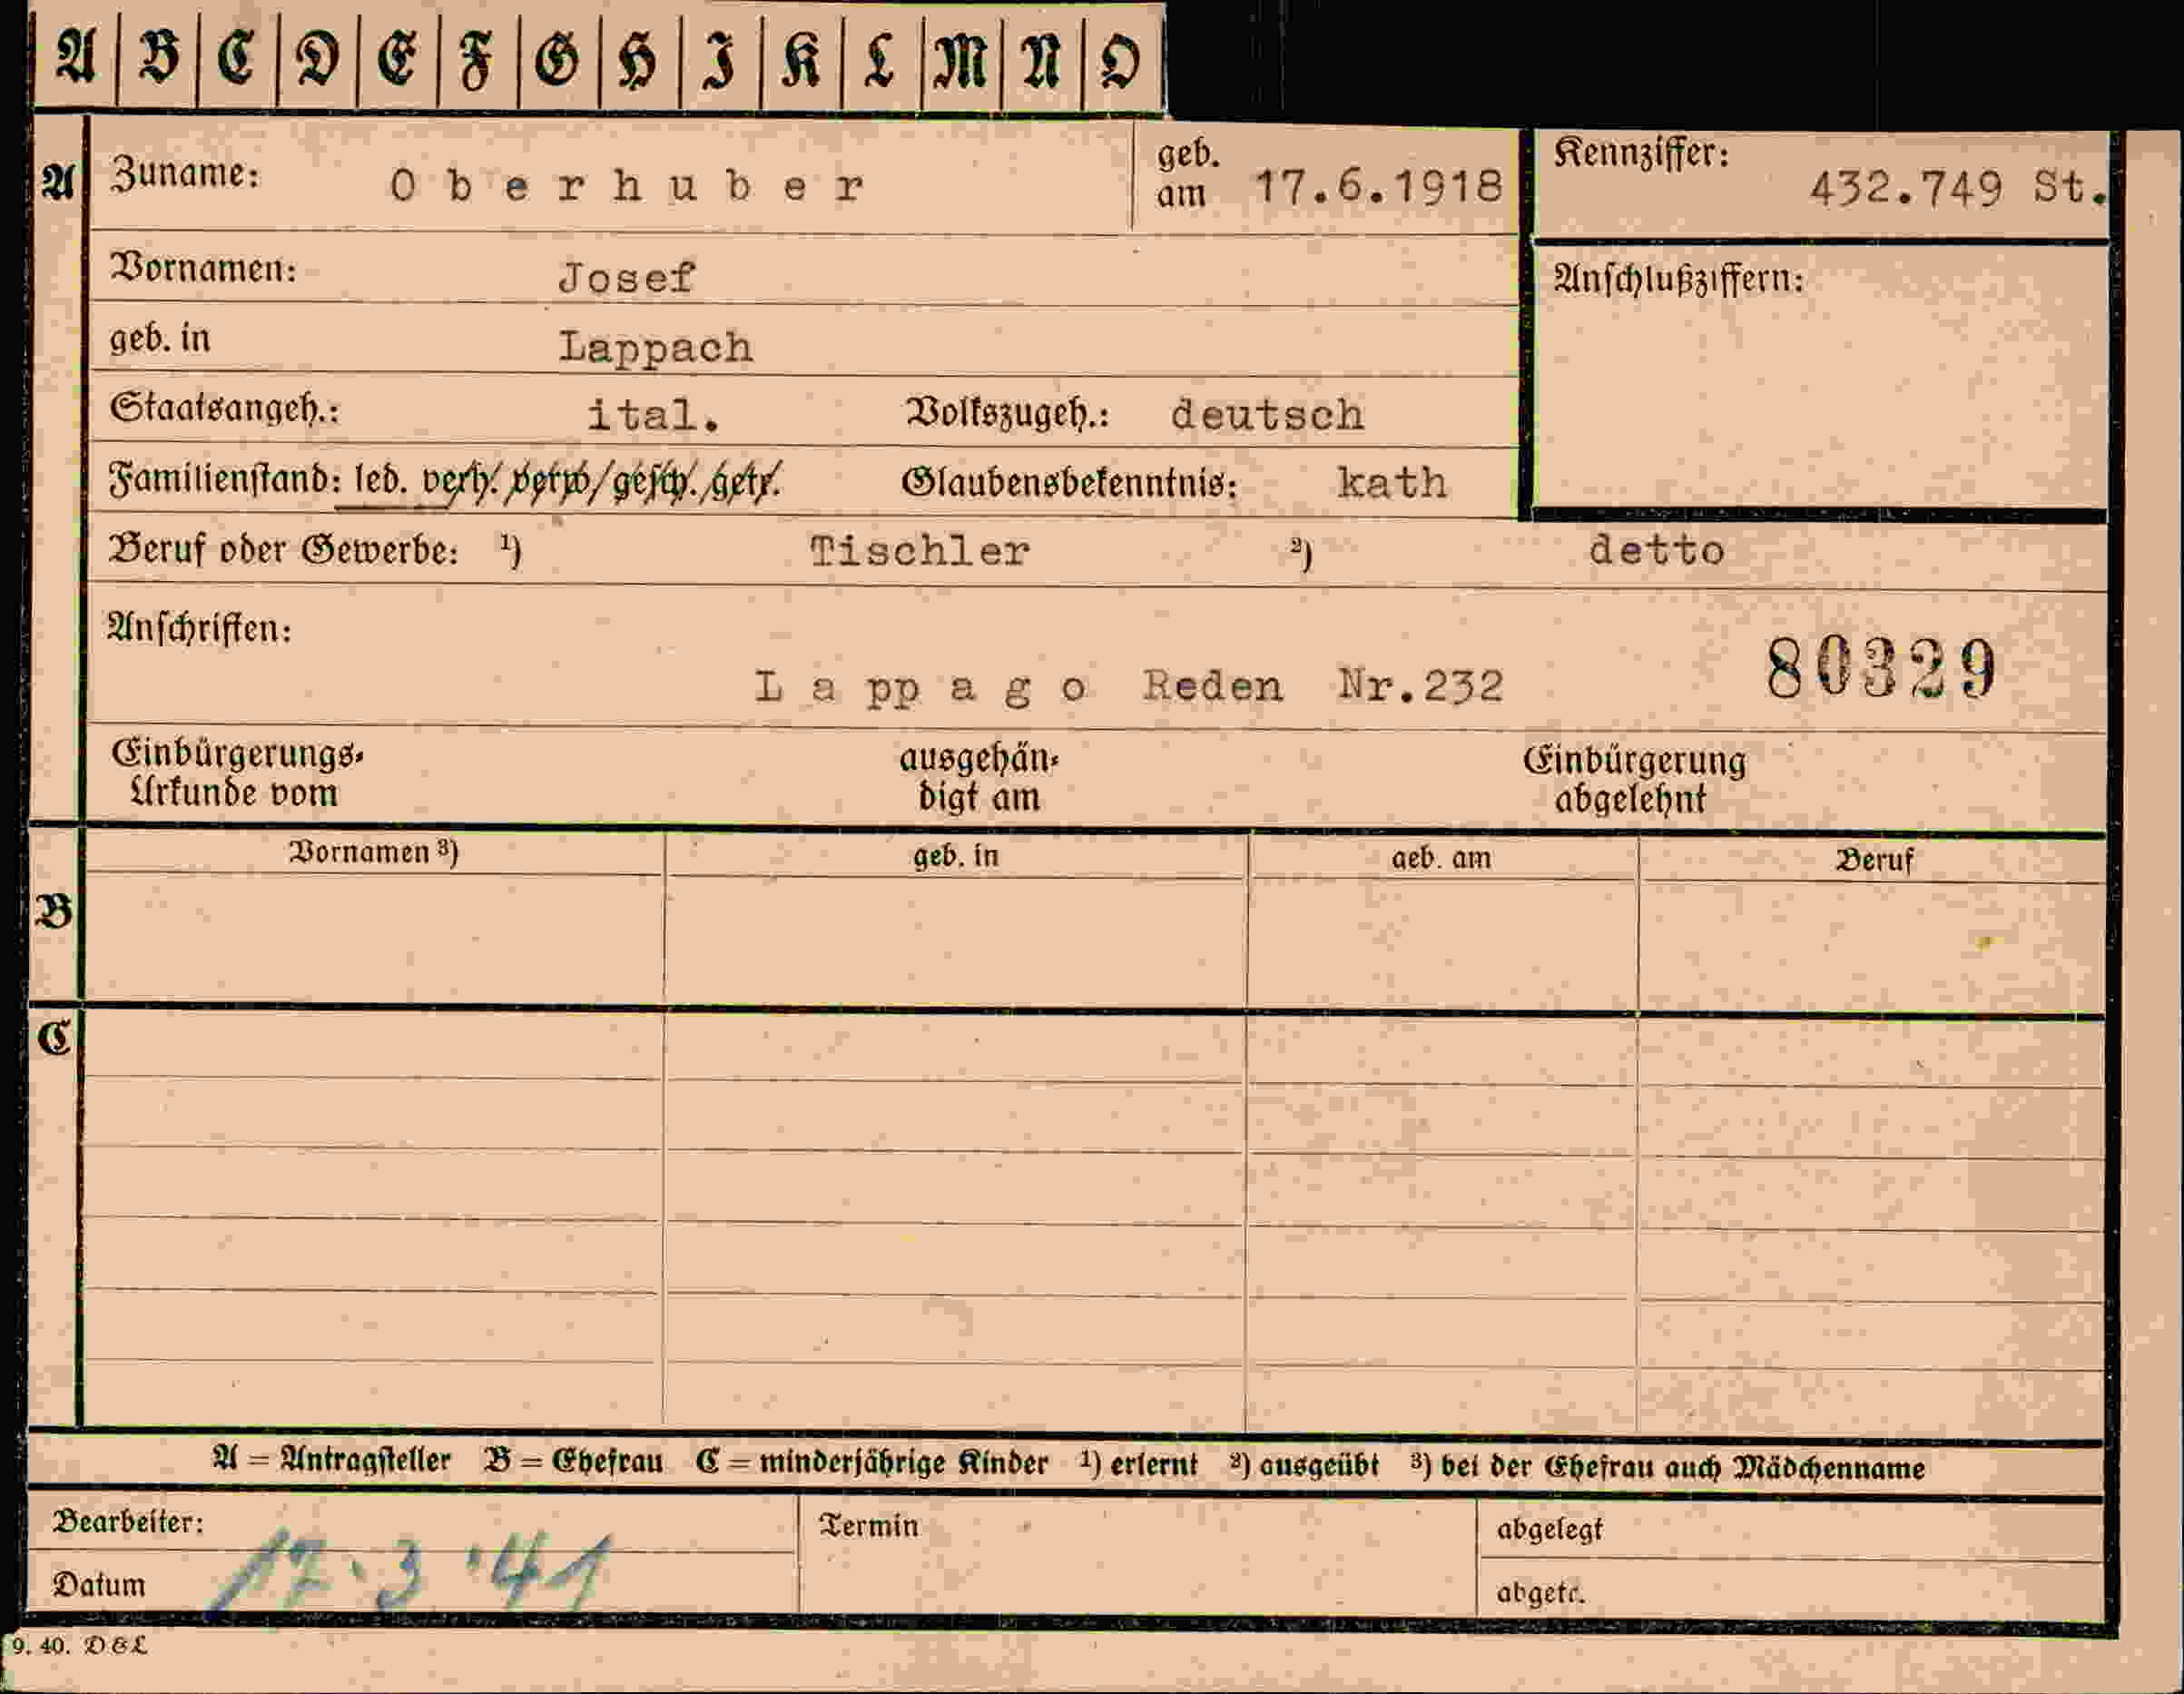 A B C D E F G H I K L M N O
A Zuname: Oberhuber geb. am 17.6.1918 Kennziffer: 432.749 St.
Vornamen: Josef Anschlußziffern:
geb. in Lappach
Staatsangeh.: ital. Volkszugeh.: deutsch
Familienstand: led. verh./verw/gesch./getr. Glaubensbekenntnis: kath
Beruf oder Gewerbe: ¹) Tischler ²) detto
Anschriften:
Lappago Reden Nr.232 80329
Einbürgerungs- ausgehän- Einbürgerung
Urkunde vom digt am abgelehnt
Vornamen ³) geb. in geb. am Beruf
B
C
A = Antragsteller B = Ehefrau C = minderjährige Kinder ¹) erlernt ²) ausgeübt ³) bei der Ehefrau auch Mädchenname
Bearbeiter: Termin abgelegt
Datum 17.3'41 abgetr.
9. 40. DGL